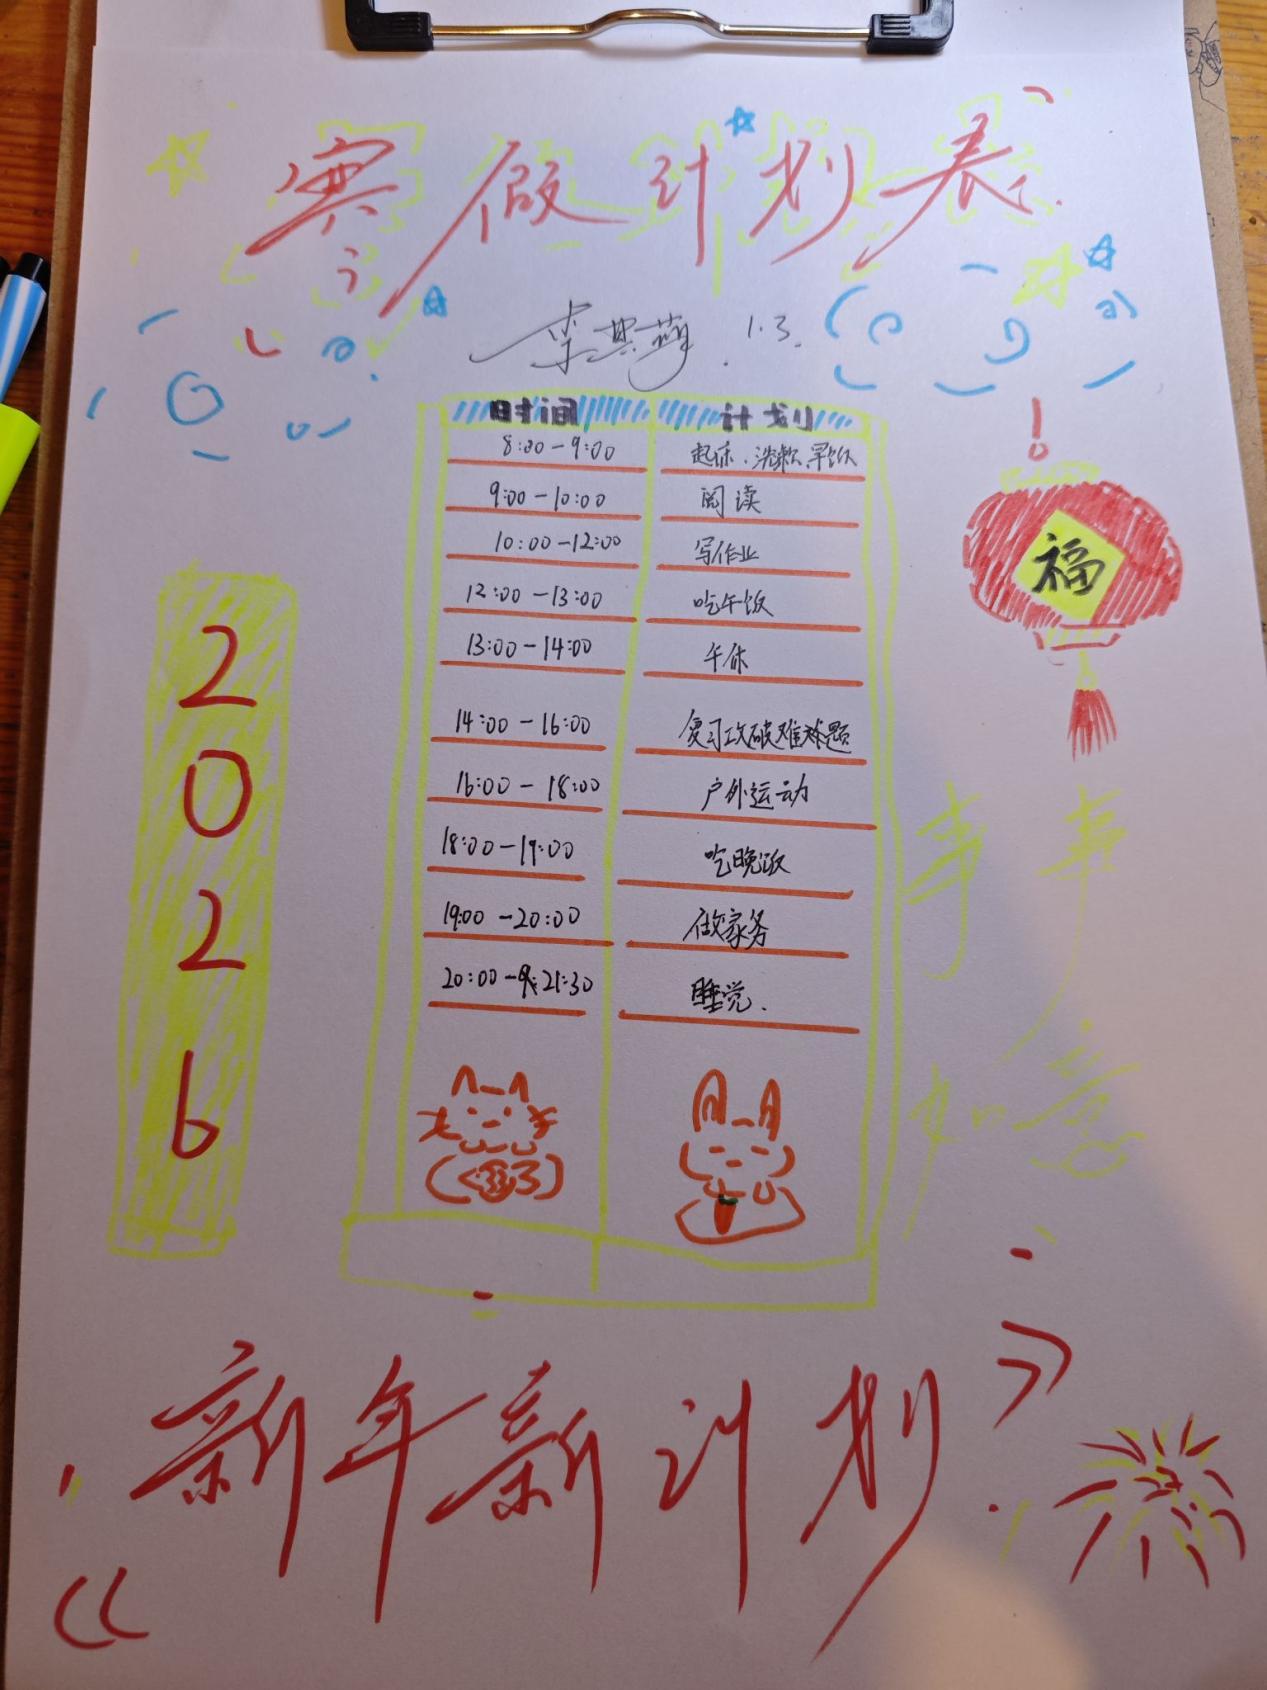 寒假计划表
李奕萌 1.3.
时间 计划
8:00-9:00 起床、洗漱、早饭
9:00-10:00 阅读
10:00-12:00 写作业
12:00-13:00 吃午饭
13:00-14:00 午休
14:00-16:00 复习攻破难题
16:00-18:00 户外运动
18:00-19:00 吃晚饭
19:00-20:00 做家务
20:00-21:30 睡觉.
2026
福
事事
如意
新年新计划